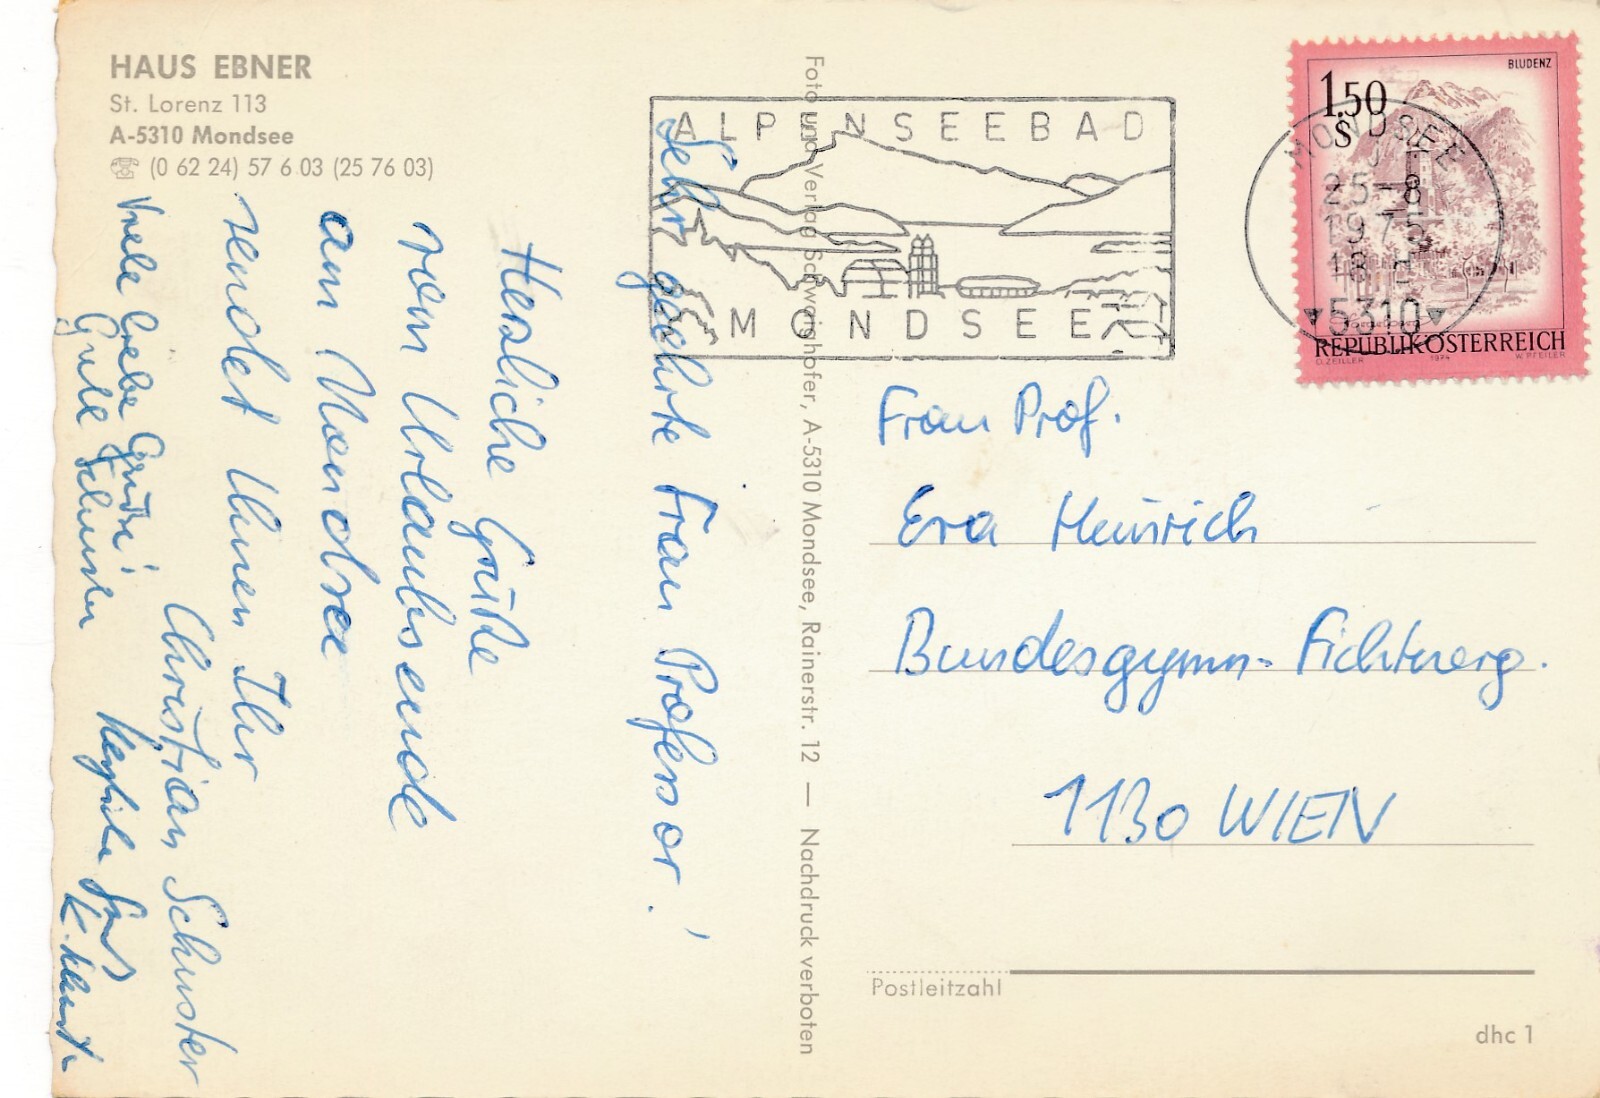 HAUS EBNER
St. Lorenz 113
A-5310 Mondsee
☏ (0 62 24) 57 6 03 (25 76 03)
Sehr geehrte Frau Professor!
Herzliche Grüße
vom Urlaubsende
am Mondsee
sendet Ihnen Ihr
Christian Schuster
Viele liebe Grüße!
Schuster
K.
Foto und Verlag Schwaighofer, A-5310 Mondsee, Rainerstr. 12 — Nachdruck verboten
ALPENSEEBAD
MONDSEE
BLUDENZ
1.50
S
REPUBLIK ÖSTERREICH
O. ZEILLER 1974 W. PFEILER
MONDSEE
25-8
1975
5310
Frau Prof.
Eva Heinrich
Bundesgymn. Fichtnerg.
1130 WIEN
Postleitzahl
dhc 1